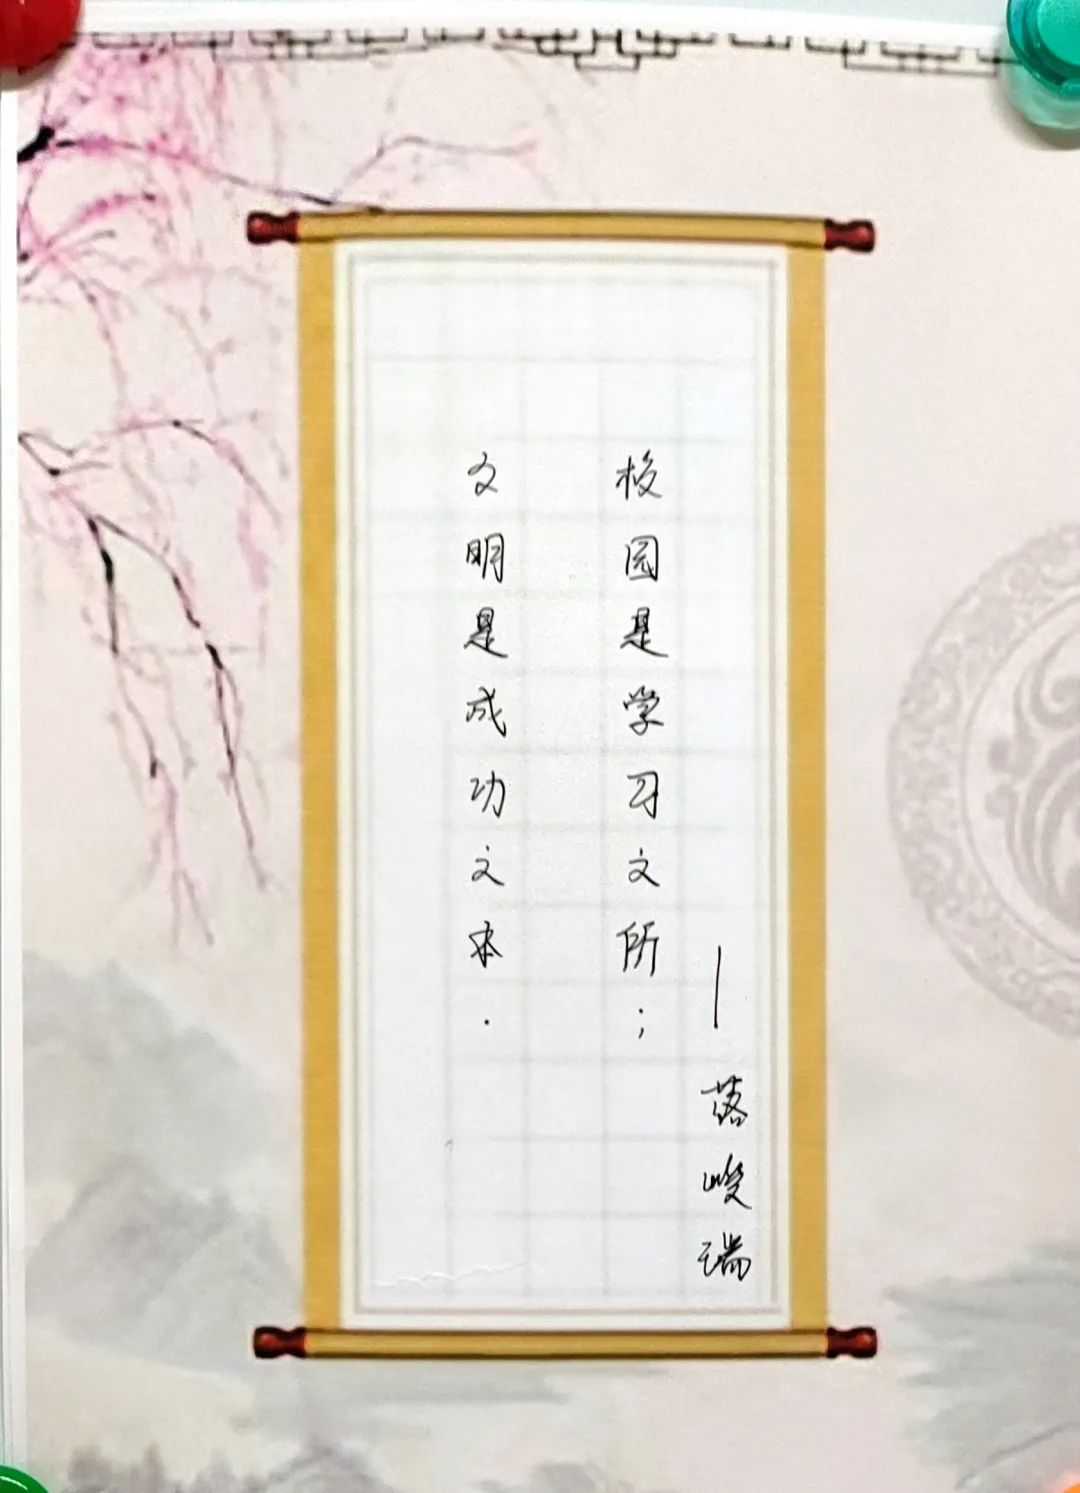 校园是学习之所；
文明是成功之本.
—落峻瑞